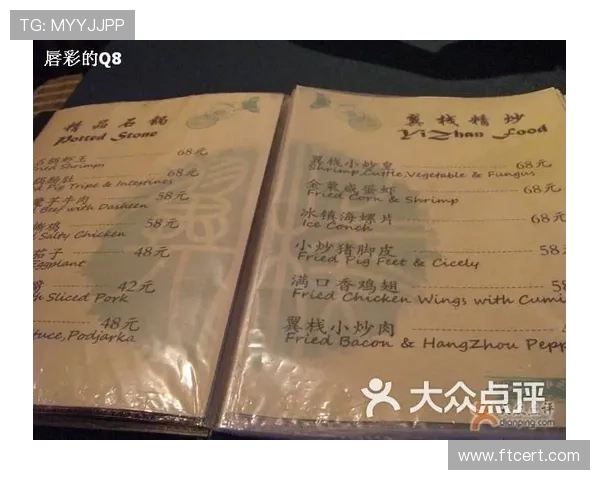 TG: MYYJJPP
唇彩的Q8
精品石锅
Potted Stone
68元
Fried Shrimps
68元
Pig Tripe & Intestines
芋牛肉 58元
Beef with Dasheen
鸡 58元
Salty Chicken
茄子 48元
Eggplant
42元
Sliced Pork
48元
tuce,Podjarka
翼栈精炒
YiZhan Food
翼栈小炒皇 68元
Shrimp,Cuttle,Vegetable & Fungus
金粟咸蛋虾 68元
Fried Corn & Shrimp
冰镇海螺片 68元
Ice Conch
小炒猪脚皮 58
Fried Pig Feet & Cicely
满口香鸡翅 58
Fried Chicken Wings with Cumi
翼栈小炒肉
Fried Bacon & HangZhou Pepp
大众点评
dianping.com
www.ftcert.com